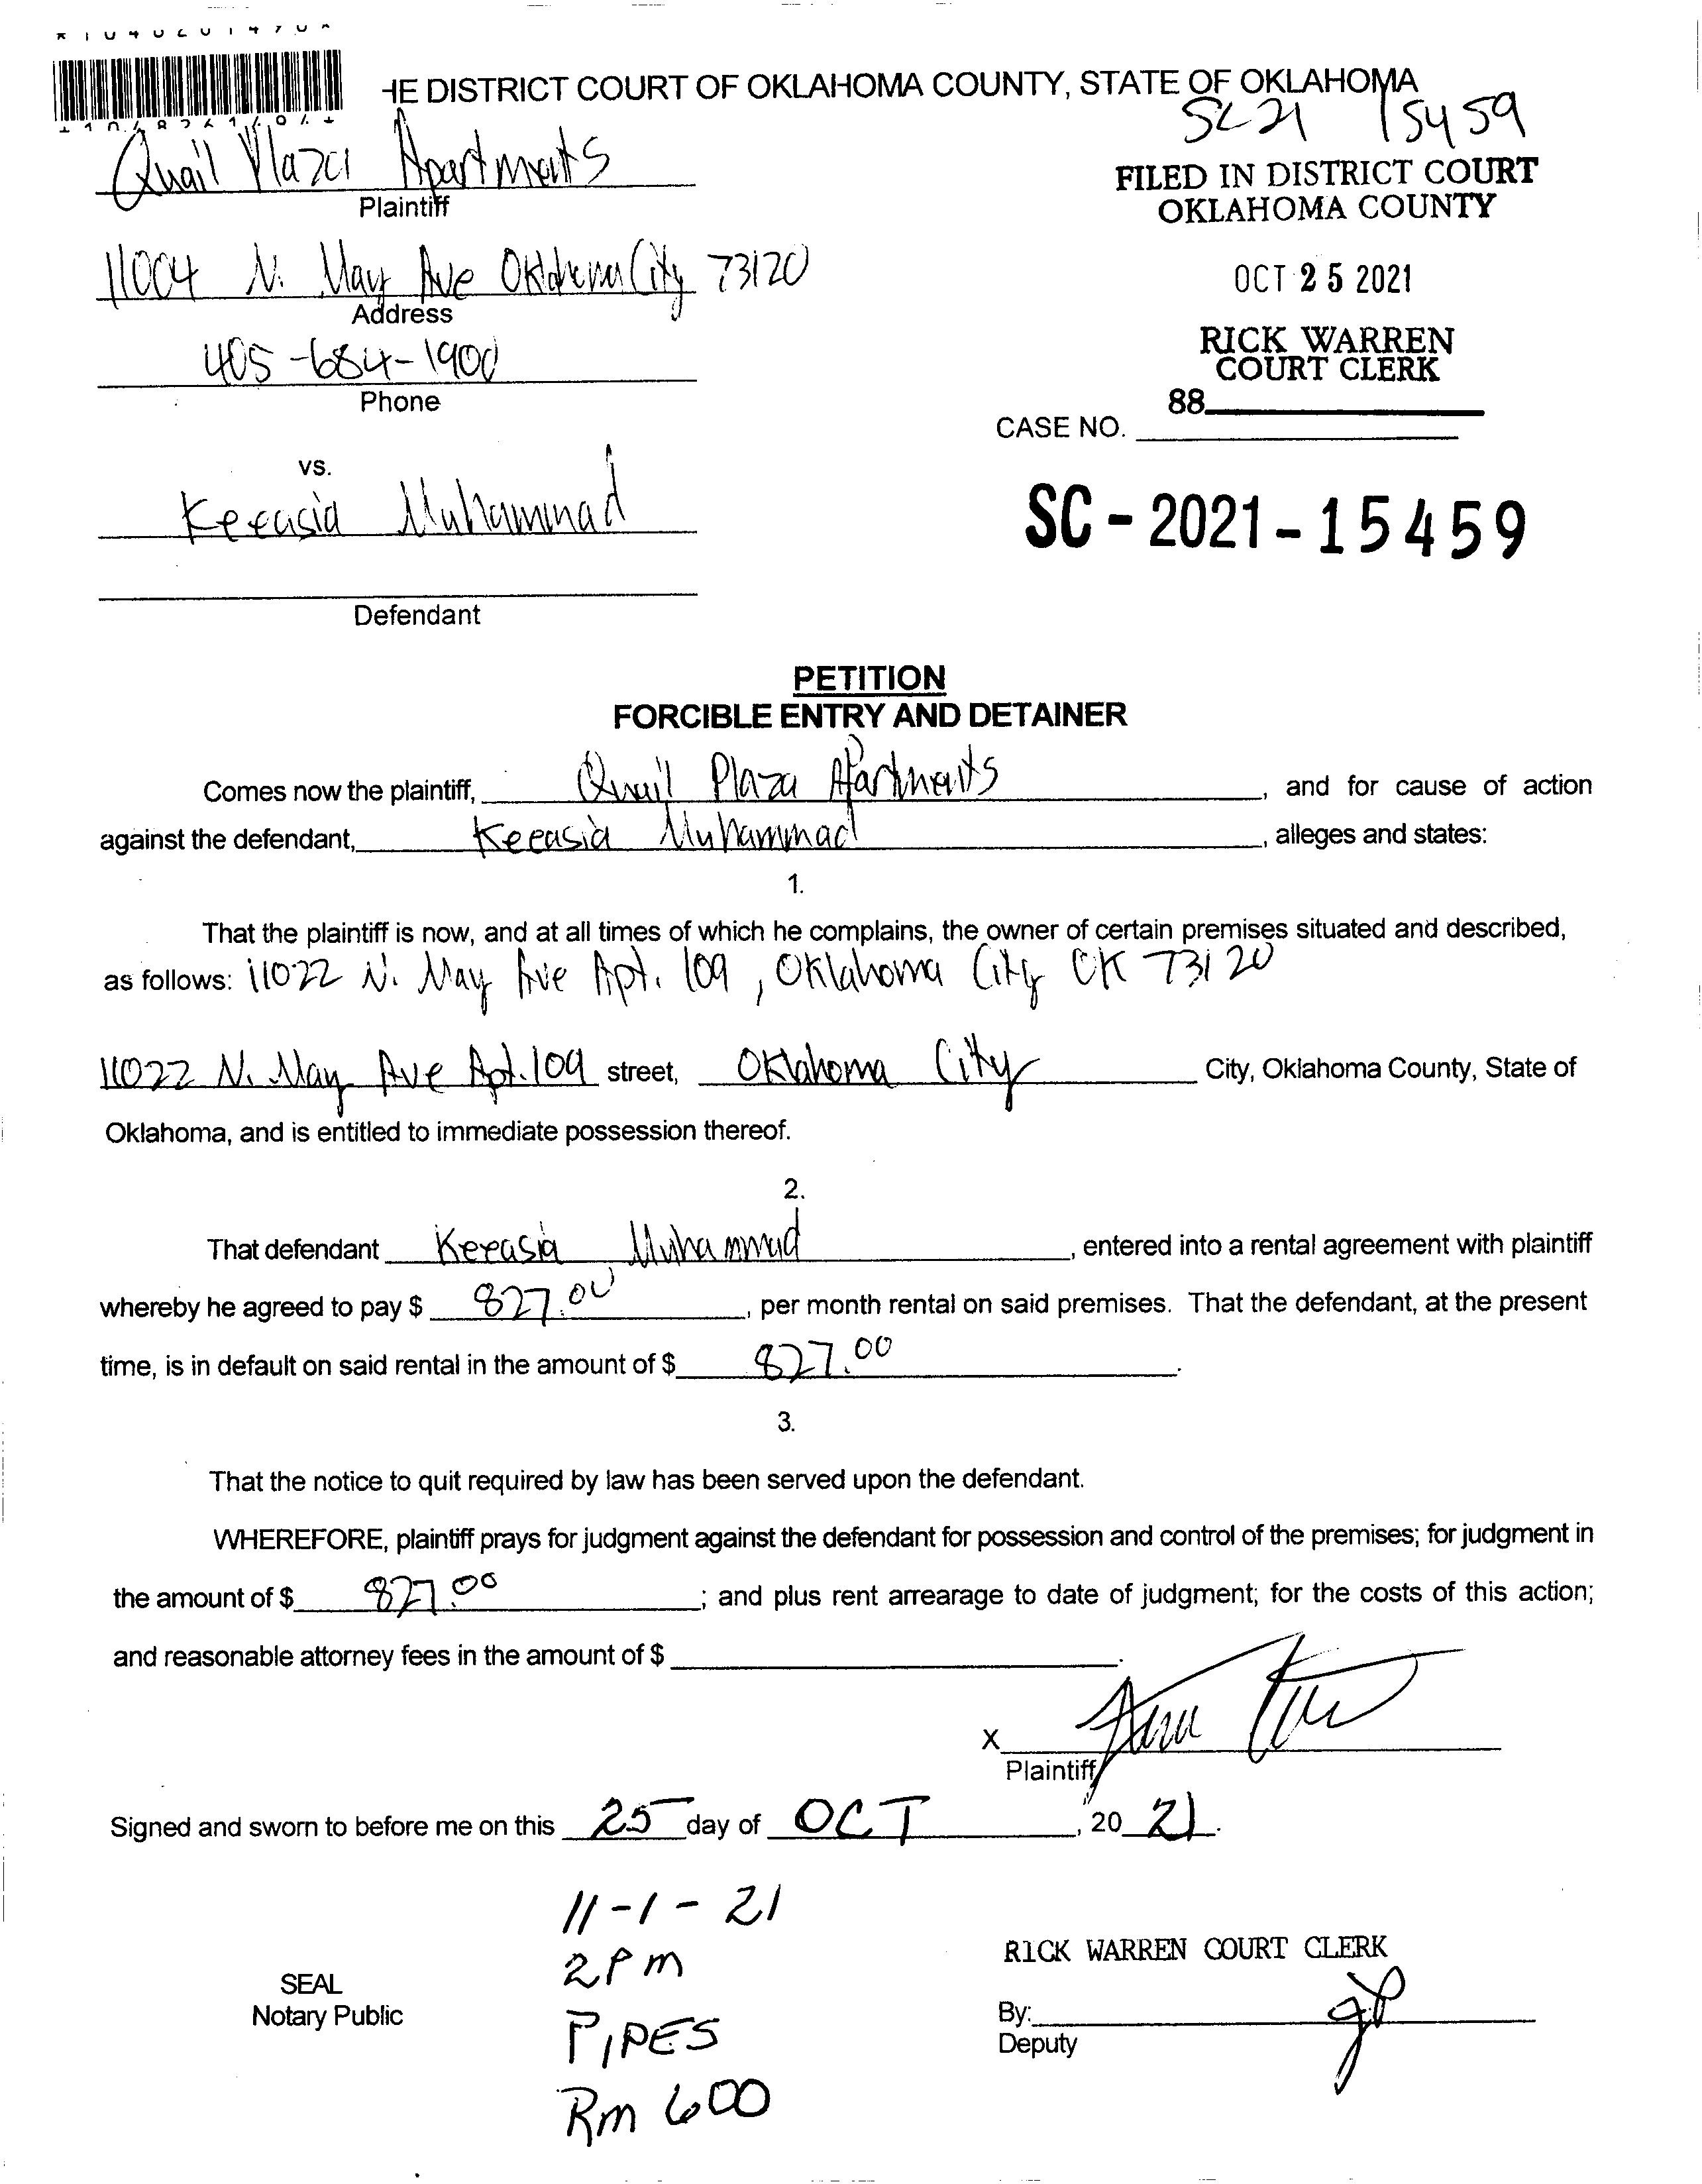 HE DISTRICT COURT OF OKLAHOMA COUNTY, STATE OF OKLAHOMA
SC21 15459
Quail Plaza Apartments
Plaintiff
FILED IN DISTRICT COURT
OKLAHOMA COUNTY
11004 N. May Ave Oklahoma City 73120
Address
OCT 25 2021
405-684-1900
Phone
RICK WARREN
COURT CLERK
88
CASE NO.
vs.
Keeasia Muhammad
SC-2021-15459
Defendant
PETITION
FORCIBLE ENTRY AND DETAINER
Comes now the plaintiff, Quail Plaza Apartments, and for cause of action
against the defendant, Keeasia Muhammad, alleges and states:
1.
That the plaintiff is now, and at all times of which he complains, the owner of certain premises situated and described,
as follows: 11022 N. May Ave Apt. 109, Oklahoma City OK 73120
11022 N. May Ave Apt. 109 street, Oklahoma City City, Oklahoma County, State of
Oklahoma, and is entitled to immediate possession thereof.
2.
That defendant Keeasia Muhammad, entered into a rental agreement with plaintiff
whereby he agreed to pay $ 827.00, per month rental on said premises. That the defendant, at the present
time, is in default on said rental in the amount of $ 827.00.
3.
That the notice to quit required by law has been served upon the defendant.
WHEREFORE, plaintiff prays for judgment against the defendant for possession and control of the premises; for judgment in
the amount of $ 827.00; and plus rent arrearage to date of judgment; for the costs of this action;
and reasonable attorney fees in the amount of $ .
X
Plaintiff
Signed and sworn to before me on this 25 day of OCT, 20 21.
11-1-21
2PM
PIPES
Rm 600
SEAL
Notary Public
RICK WARREN COURT CLERK
By:
Deputy